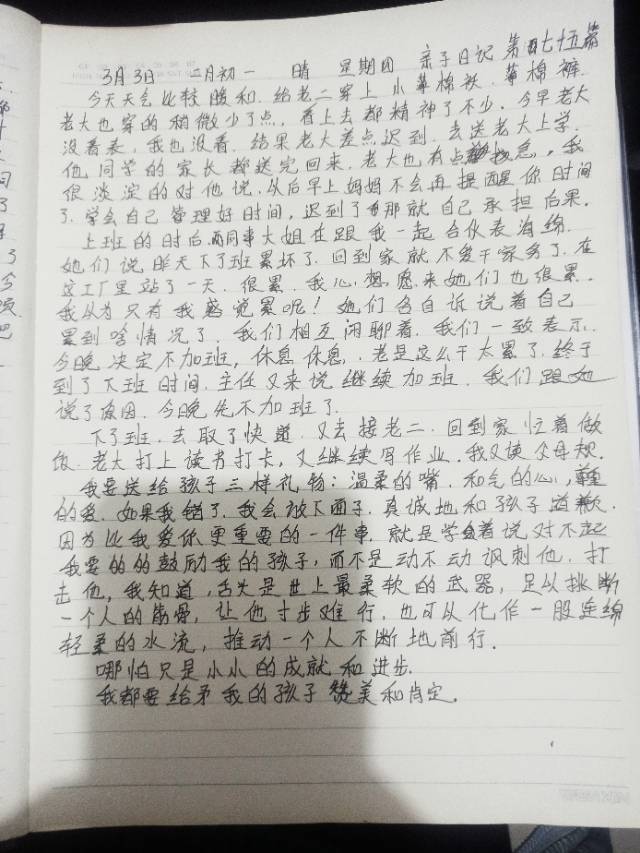 3月3日 二月初一 晴 星期四 亲子日记 第 七十五篇
今天天气比较暖和. 给老二穿上小薄棉袄. 薄棉裤.
老大也穿的稍微少了点, 看上去都精神了不少. 今早老大
没看表, 我也没看. 结果老大差点迟到. 去送老大上学.
他同学的家长都送完回来. 老大也有点 急, 我
很淡淀的对他说. 从后早上妈妈不会再提醒你时间
了. 学会自己管理好时间, 迟到了 那就自己承担后果.
上班的时后. 同事大姐在跟我一起台伙表海绵.
她们说昨天下了班累坏了. 回到家就不爱干家务了. 在
这工厂里站了一天. 很累. 我心想 愿来她们也很累.
我从为只有我感觉累呢! 她们各自诉说着自己
累到啥情况了. 我们相互闲聊着. 我们一致表示.
今晚决定不加班, 休息休息, 老是这么干太累了. 终于
到了下班时间. 主任又来说继续加班. 我们跟她
说了原因. 今晚先不加班了.
下了班. 去取了快递. 又去接老二. 回到家忙着做
饭. 老大打上读书打卡, 又继续写作业. 我又读父母规.
我要送给孩子三样礼物: 温柔的嘴. 和气的心,
的爱. 如果我错了. 我会放下面子. 真诚地和孩子道歉.
因为比我爱你更重要的一件事. 就是学会着说对不起
我要的的鼓励我的孩子, 而不是动不动讽刺他, 打
击他, 我知道, 舌头是世上最柔软的武器, 足以挑断
一个人的筋骨, 让他寸步难行. 也可以化作一股连绵
轻柔的水流, 推动一个人不断地前行.
哪怕只是小小的成就和进步.
我都要给予我的孩子赞美和肯定.